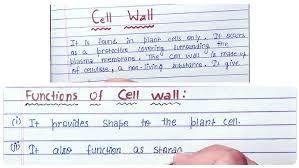 Cell Wall
It is found in plant cells only. It occurs
as a protective covering surrounding the
plasma membrane. The cell wall is made up
of cellulose, a non-living substance. It give
Functions of Cell wall:
(i) It provides shape to the plant cell.
(ii) It also function as storag